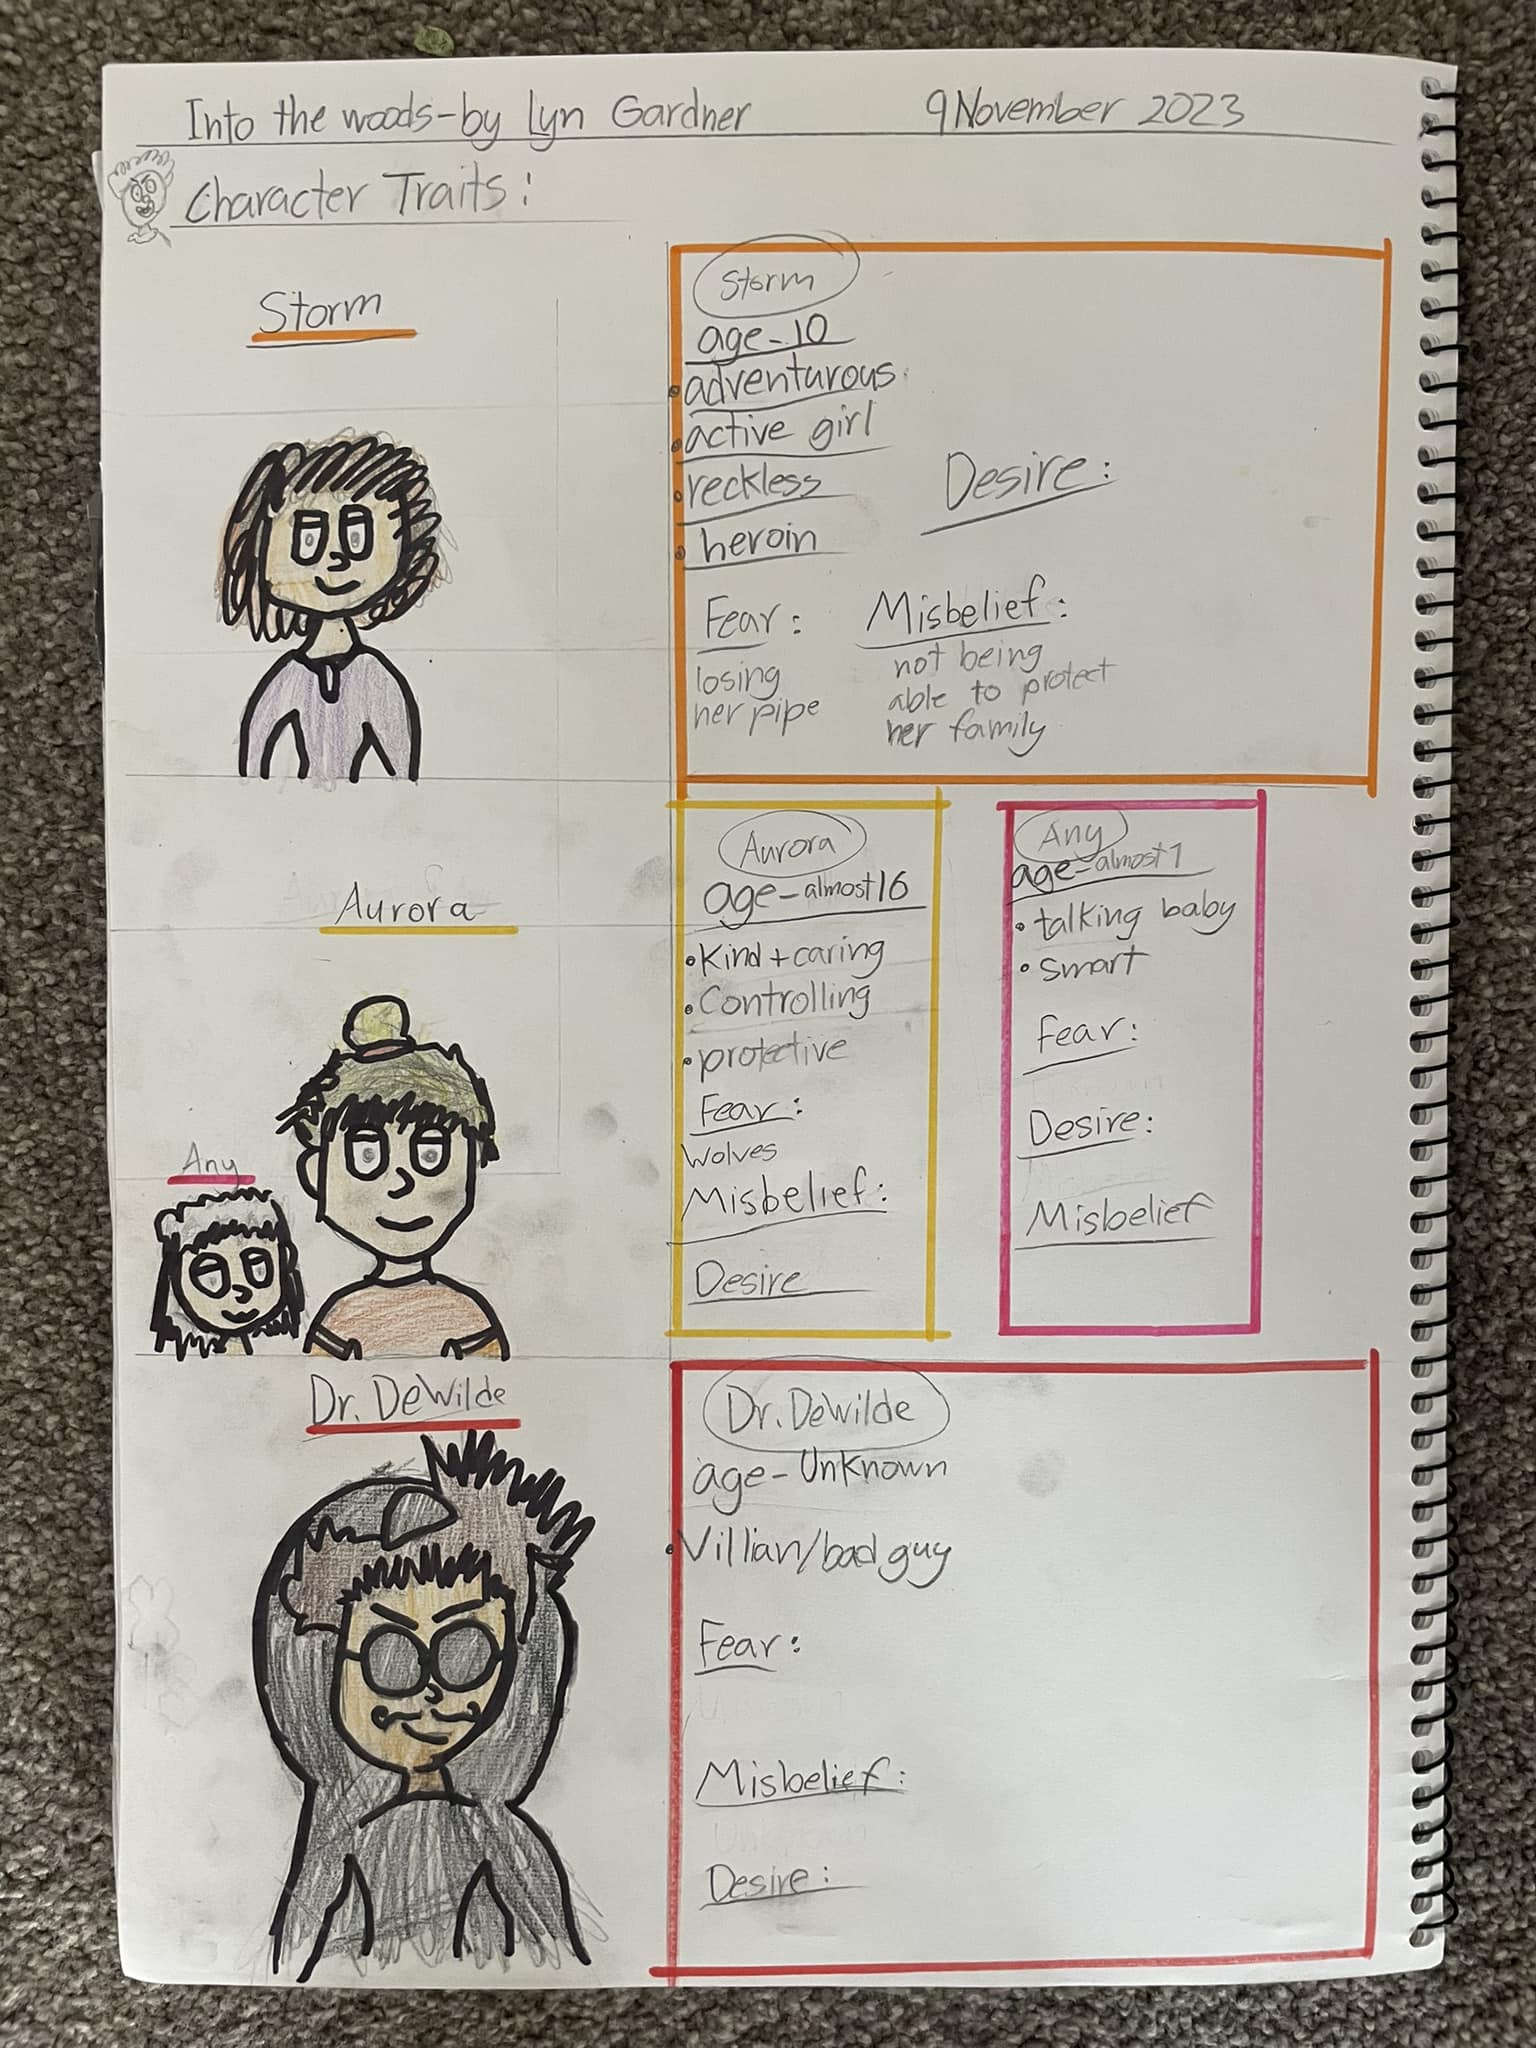 Into the woods-by Lyn Gardner
9 November 2023
Character Traits:
Storm
Storm
age-10
•adventurous
•active girl
•reckless
•heroin
Desire:
Fear:
losing
her pipe
Misbelief:
not being
able to protect
her family
Aurora
Any
Aurora
age-almost 16
•Kind+caring
•Controlling
•protective
Fear:
Wolves
Misbelief:
Desire
Any
age-almost 1
•talking baby
•smart
Fear:
Desire:
Misbelief
Dr. DeWilde
Dr. DeWilde
age-Unknown
•Villian/bad guy
Fear:
Misbelief:
Desire: